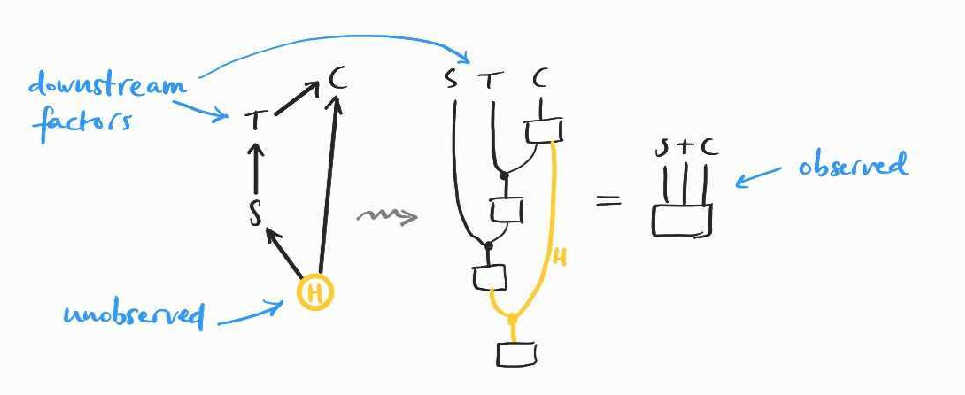 downstream
factors
C
T
S
H
unobserved
S T C
H
=
S T C
observed